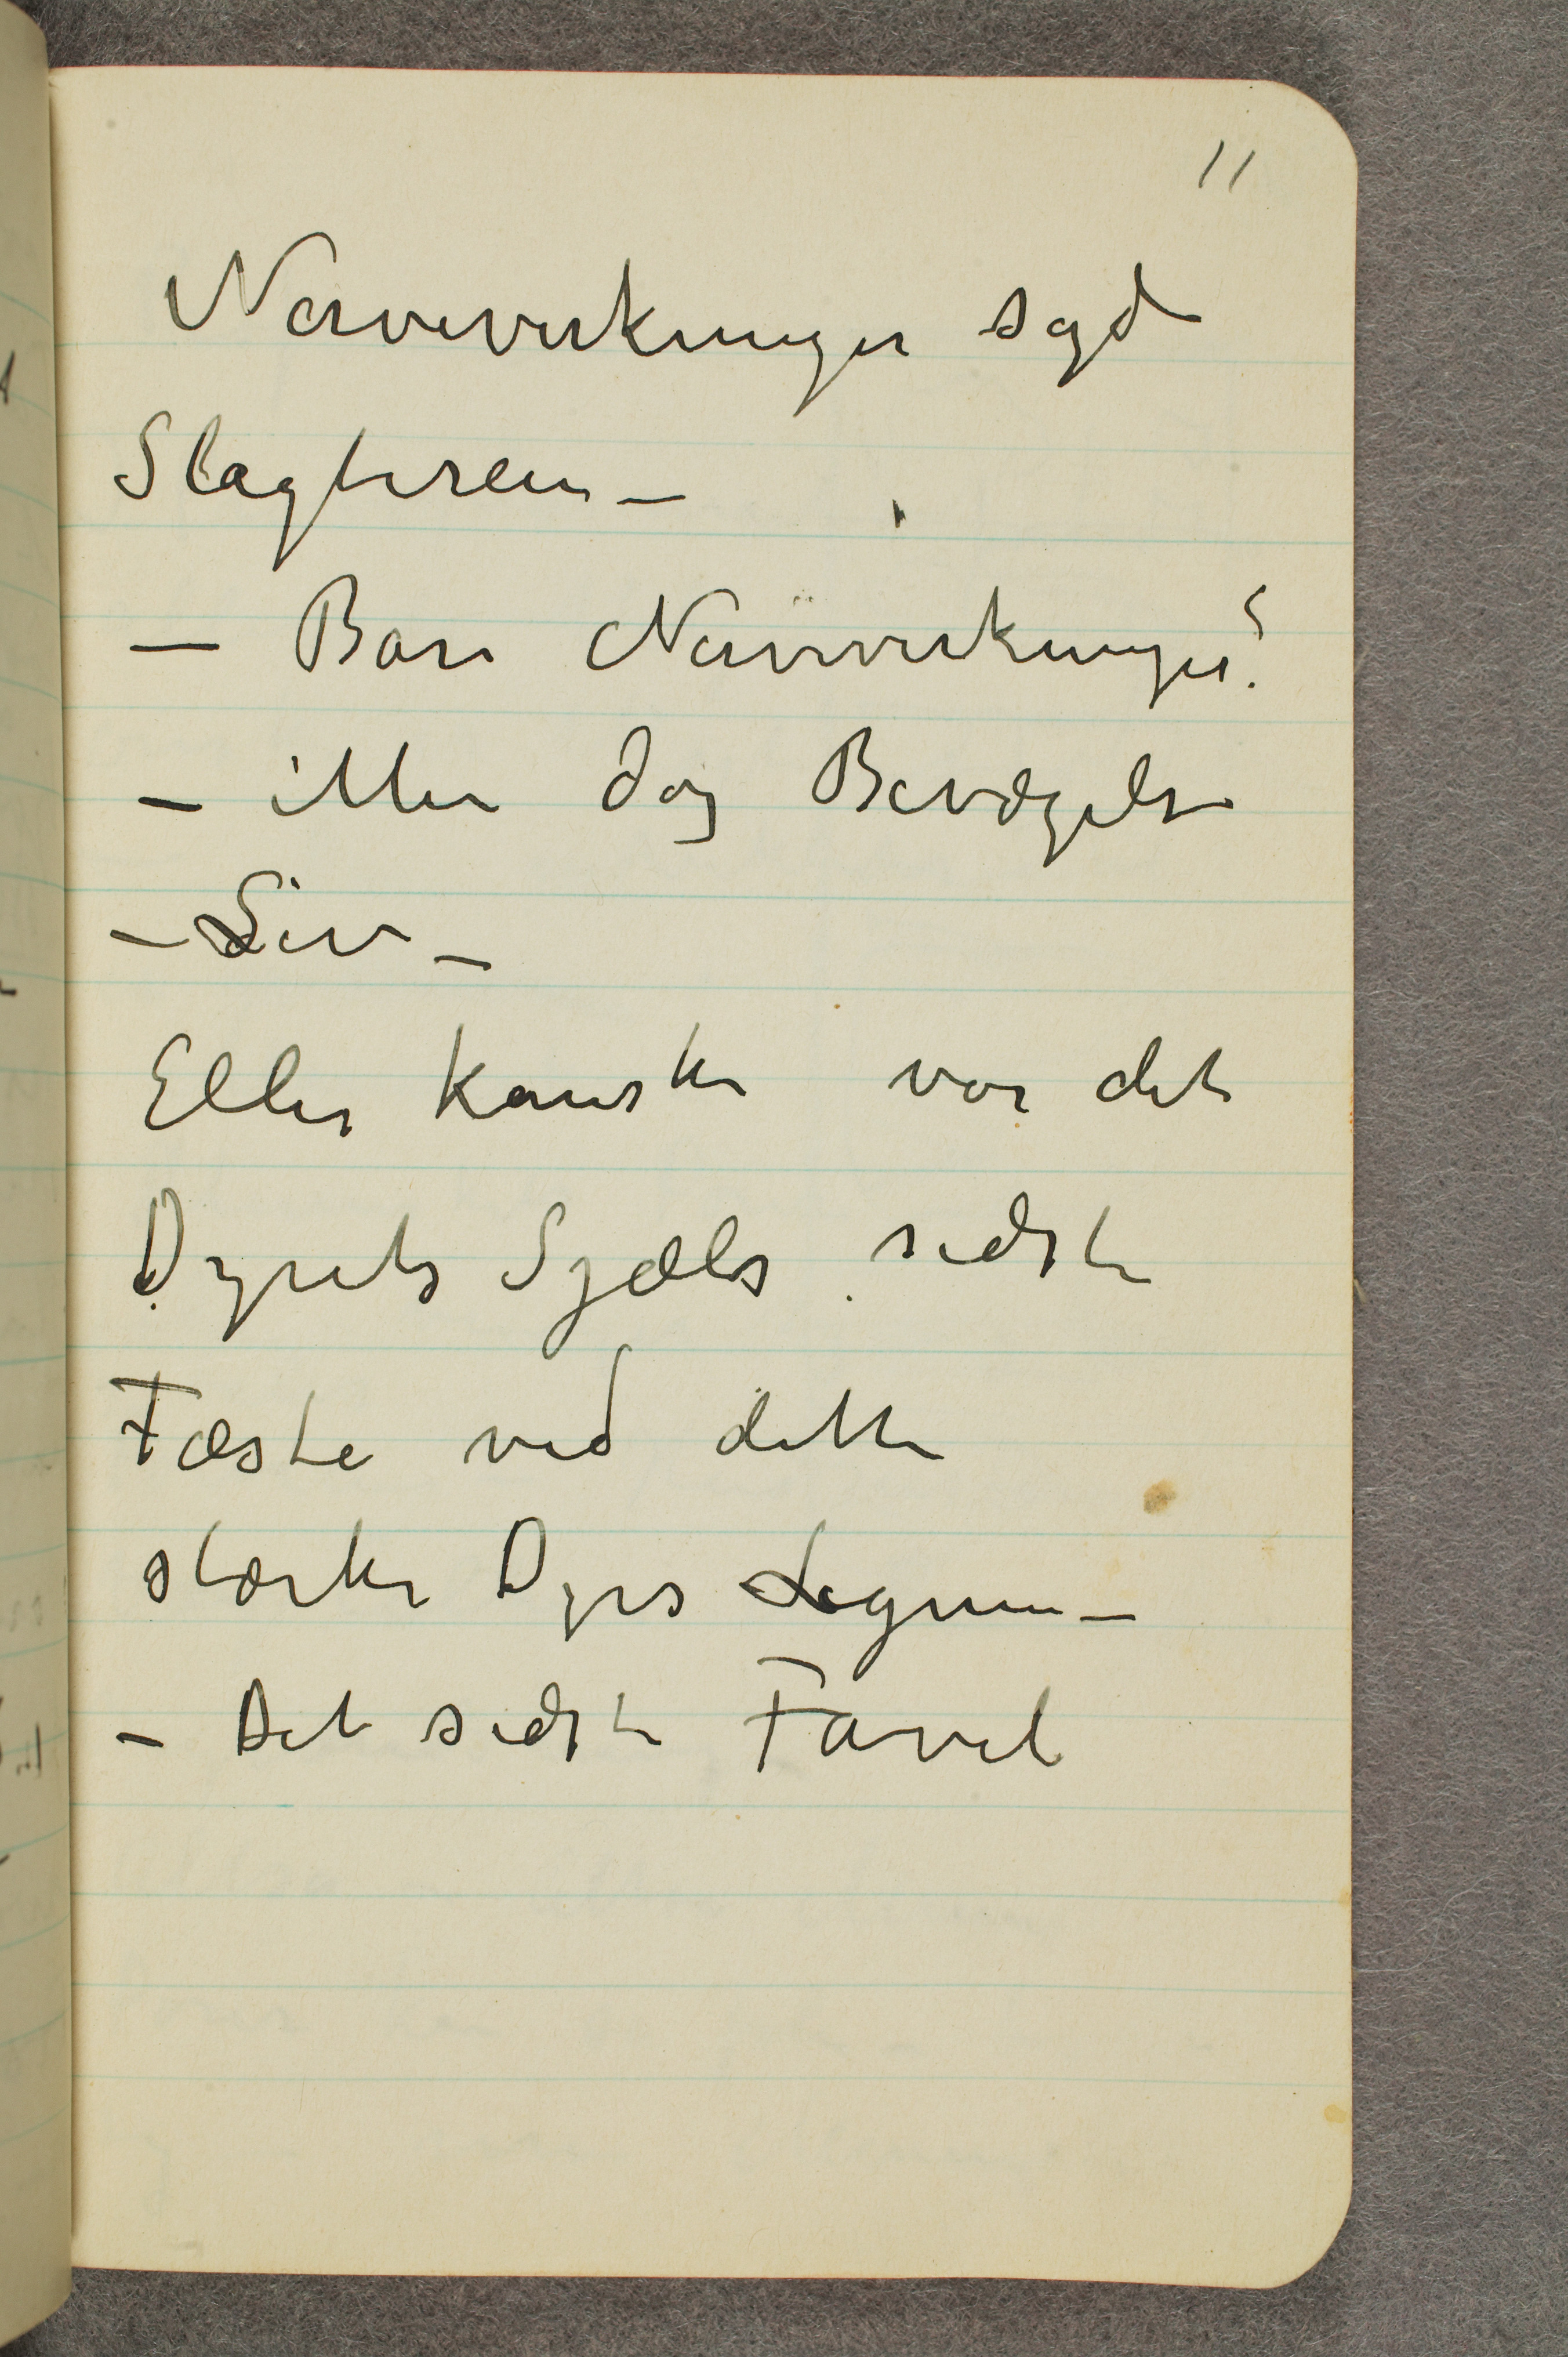 11
Nervevirkninger sagde
Slagteren –
– Bare Nervevirkninger?
– Men dog Bevægelse
– Liv –
Eller kanske var det
Dyrets Sjæls sidste
Fæste ved dette
stærke Dyrs Legeme –
– Det sidste Farvel